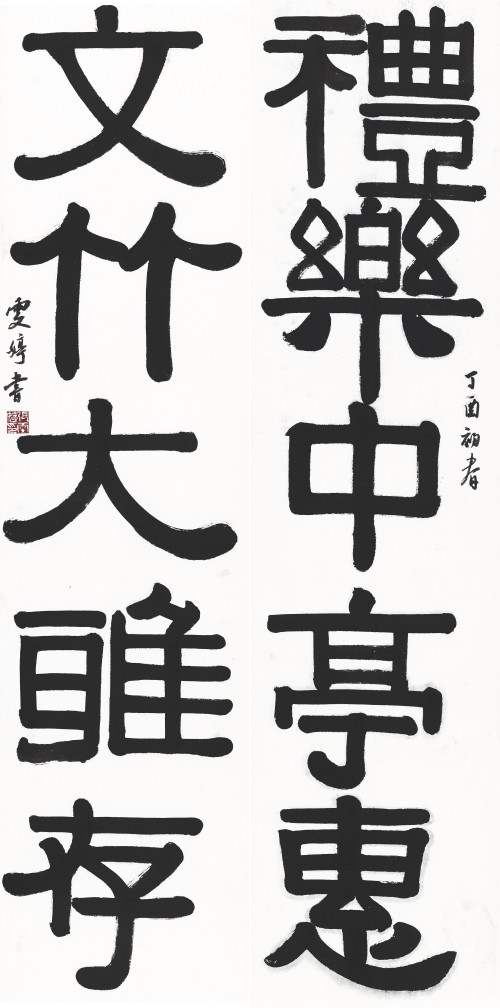 丁酉初春
禮樂中亭惠
文竹大雅存
雯婷書